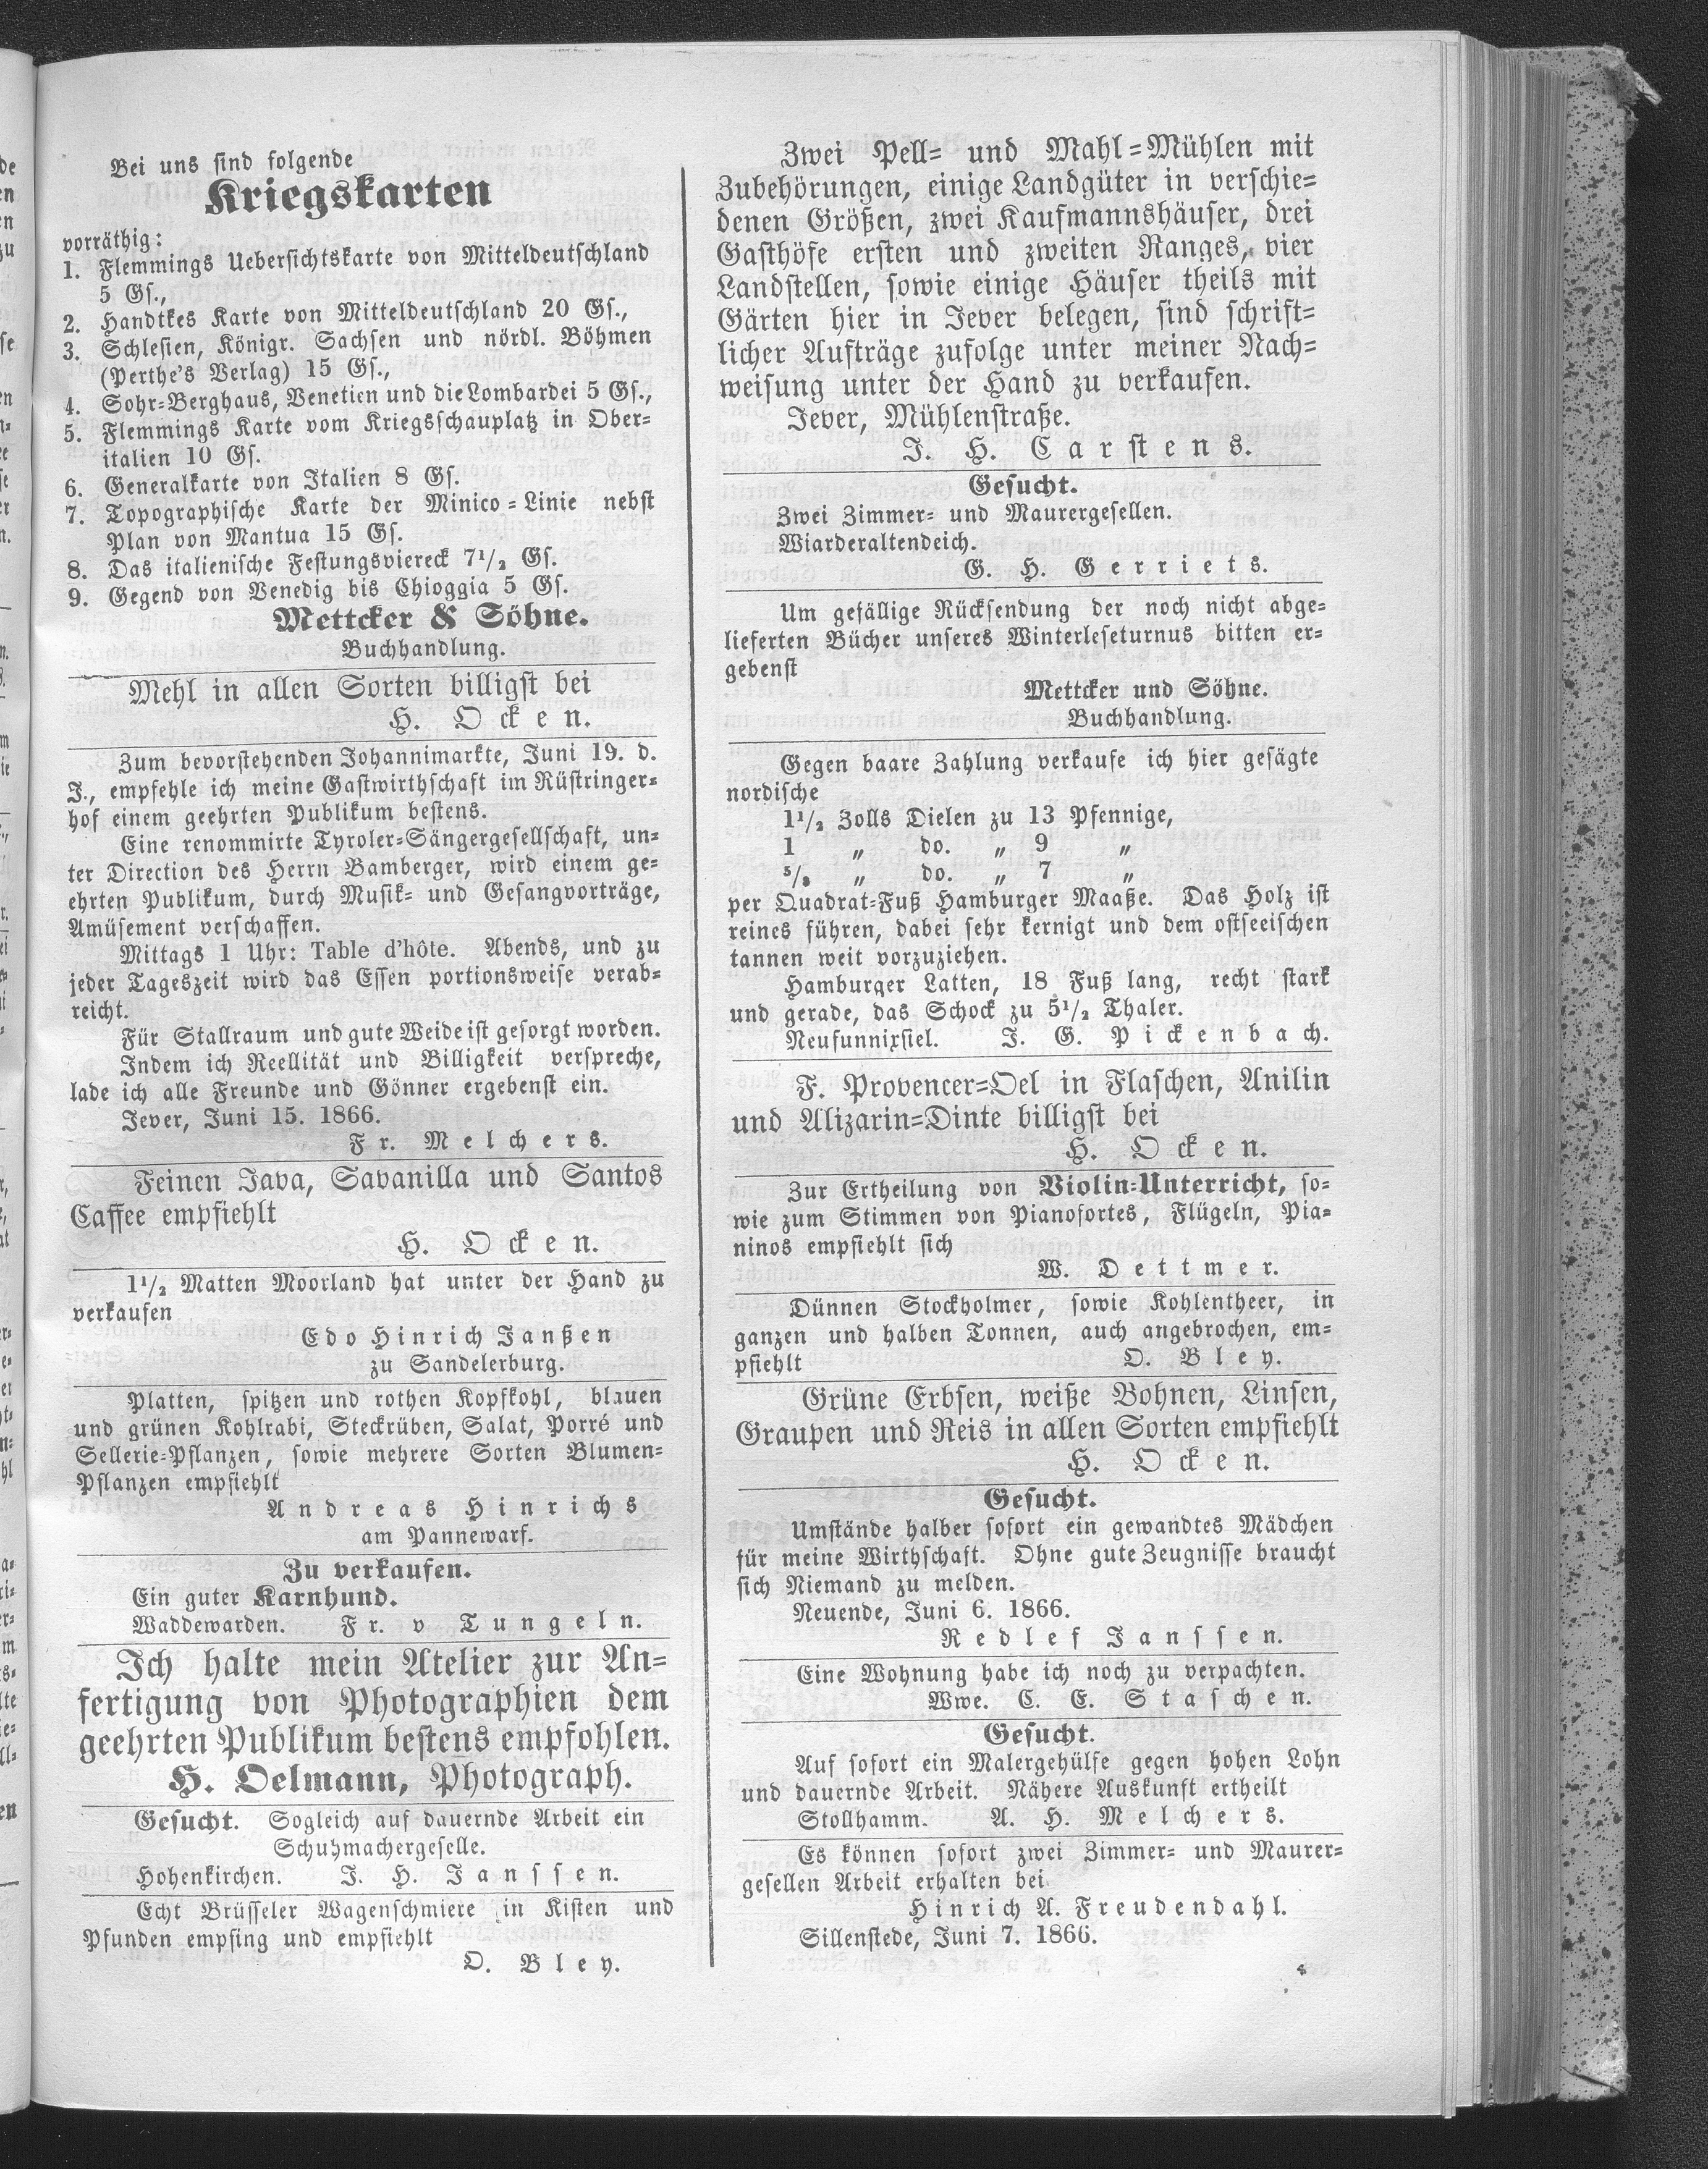 Bei uns sind folgende
Kriegskarten
vorräthig:
1. Flemmings Uebersichtskarte von Mitteldeutschland
5 Gs.,
2. Handtkes Karte von Mitteldeutschland 20 Gs.,
3. Schlesien, Königr. Sachsen und nördl. Böhmen
(Perthe's Verlag) 15 Gs.,
4. Sohr=Berghaus, Venetien und die Lombardei 5 Gs.,
5. Flemmings Karte vom Kriegsschauplatz in Ober=
italien 10 Gs.
6. Generalkarte von Italien 8 Gs.
7. Topographische Karte der Minico=Linie nebst
Plan von Mantua 15 Gs.
8. Das italienische Festungsviereck 7 1/2 Gs.
9. Gegend von Venedig bis Chioggia 5 Gs.
Mettcker & Söhne.
Buchhandlung.
Mehl in allen Sorten billigst bei
H. Ocken.
Zum bevorstehenden Johannimarkte, Juni 19. d.
J., empfehle ich meine Gastwirthschaft im Rüstringer=
hof einem geehrten Publikum bestens.
Eine renommirte Tyroler=Sängergesellschaft, un=
ter Direction des Herrn Bamberger, wird einem ge=
ehrten Publikum, durch Musik= und Gesangvorträge,
Amüsement verschaffen.
Mittags 1 Uhr: Table d'hôte. Abends, und zu
jeder Tageszeit wird das Essen portionsweise verab=
reicht.
Für Stallraum und gute Weide ist gesorgt worden.
Indem ich Reellität und Billigkeit verspreche,
lade ich alle Freunde und Gönner ergebenst ein.
Jever, Juni 15. 1866.
Fr. Melchers.
Feinen Java, Savanilla und Santos
Caffee empfiehlt
H. Ocken.
1 1/2 Matten Moorland hat unter der Hand zu
verkaufen
Edo Hinrich Janßen
zu Sandelerburg.
Platten, spitzen und rothen Kopfkohl, blauen
und grünen Kohlrabi, Steckrüben, Salat, Porré und
Sellerie=Pflanzen, sowie mehrere Sorten Blumen=
Pflanzen empfiehlt
Andreas Hinrichs
am Pannewarf.
Zu verkaufen.
Ein guter Karnhund.
Waddewarden. Fr. v Tungeln.
Ich halte mein Atelier zur An=
fertigung von Photographien dem
geehrten Publikum bestens empfohlen.
H. Oelmann, Photograph.
Gesucht. Sogleich auf dauernde Arbeit ein
Schuhmachergeselle.
Hohenkirchen. J. H. Janssen.
Echt Brüsseler Wagenschmiere in Kisten und
Pfunden empfing und empfiehlt
O. Bley.
Zwei Pell= und Mahl=Mühlen mit
Zubehörungen, einige Landgüter in verschie=
denen Größen, zwei Kaufmannshäuser, drei
Gasthöfe ersten und zweiten Ranges, vier
Landstellen, sowie einige Häuser theils mit
Gärten hier in Jever belegen, sind schrift=
licher Aufträge zufolge unter meiner Nach=
weisung unter der Hand zu verkaufen.
Jever, Mühlenstraße.
J. H. Carstens.
Gesucht.
Zwei Zimmer= und Maurergesellen.
Wiarderaltendeich.
G. H. Gerriets.
Um gefällige Rücksendung der noch nicht abge=
lieferten Bücher unseres Winterleseturnus bitten er=
gebenst
Mettcker und Söhne.
Buchhandlung.
Gegen baare Zahlung verkaufe ich hier gesägte
nordische
1 1/2 Zolls Dielen zu 13 Pfennige,
1 „ do. „ 9 „
5/8 „ do. „ 7 „
per Quadrat=Fuß Hamburger Maaße. Das Holz ist
reines führen, dabei sehr kernigt und dem ostseeischen
tannen weit vorzuziehen.
Hamburger Latten, 18 Fuß lang, recht stark
und gerade, das Schock zu 5 1/2 Thaler.
Neufunnixsiel. J. G. Pickenbach.
F. Provencer=Oel in Flaschen, Anilin
und Alizarin=Dinte billigst bei
H. Ocken.
Zur Ertheilung von Violin=Unterricht, so=
wie zum Stimmen von Pianofortes, Flügeln, Pia=
ninos empfiehlt sich
W. Dettmer.
Dünnen Stockholmer, sowie Kohlentheer, in
ganzen und halben Tonnen, auch angebrochen, em=
pfiehlt O. Bley.
Grüne Erbsen, weiße Bohnen, Linsen,
Graupen und Reis in allen Sorten empfiehlt
H. Ocken.
Gesucht.
Umstände halber sofort ein gewandtes Mädchen
für meine Wirthschaft. Ohne gute Zeugnisse braucht
sich Niemand zu melden.
Neuende, Juni 6. 1866.
Redlef Janssen.
Eine Wohnung habe ich noch zu verpachten.
Wwe. C. E. Staschen.
Gesucht.
Auf sofort ein Malergehülfe gegen hohen Lohn
und dauernde Arbeit. Nähere Auskunft ertheilt
Stollhamm. A. H. Melchers.
Es können sofort zwei Zimmer= und Maurer=
gesellen Arbeit erhalten bei
Hinrich A. Freudendahl.
Sillenstede, Juni 7. 1866.